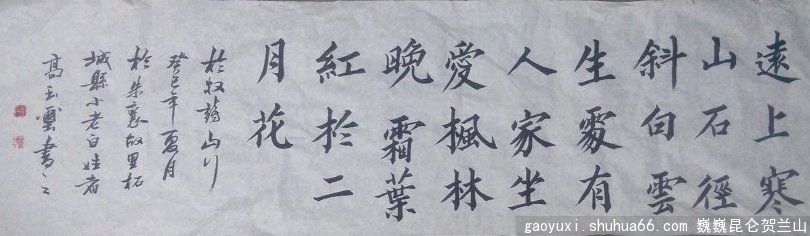 遠上寒
山石徑
斜白雲
生處有
人家坐
愛楓林
晚霜葉
紅於二
月花
杜牧詩山行
癸巳年夏月
於朱襄故里柘
城縣小老百姓者
高玉璽書之
gaoyuxi.shuhua66.com 巍巍昆仑贺兰山